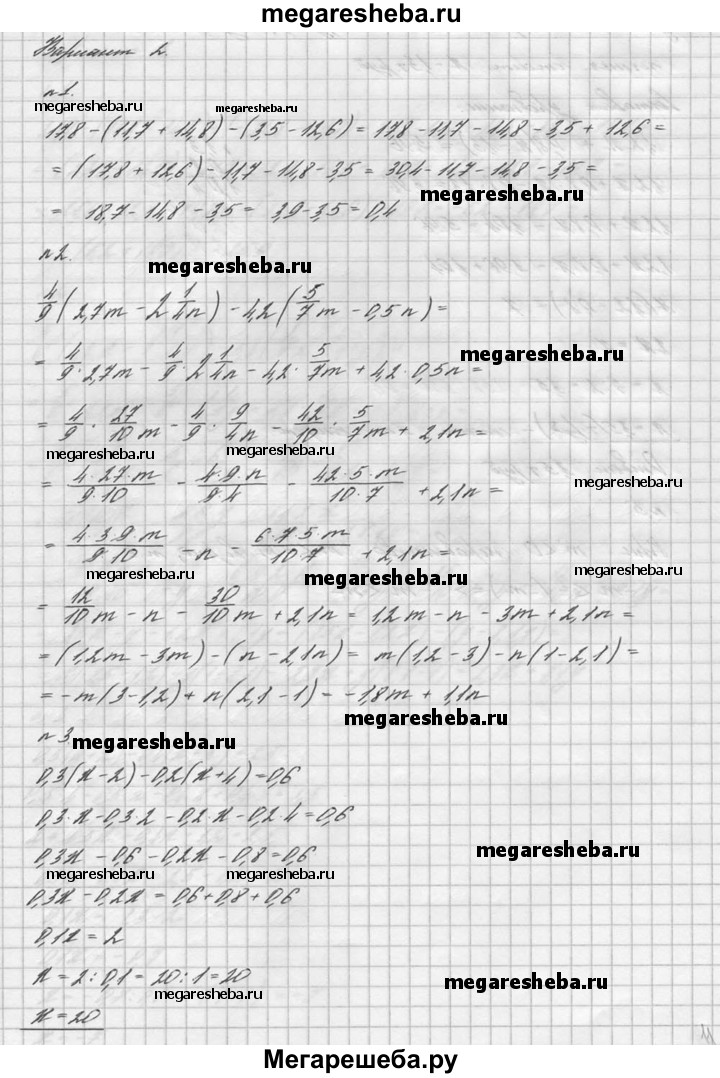 megaresheba.ru
Вариант 2.
№1.
megaresheba.ru megaresheba.ru
17,8-(11,7+14,8)-(3,5-12,6)=17,8-11,7-14,8-3,5+12,6=
=(17,8+12,6)-11,7-14,8-3,5=30,4-11,7-14,8-3,5=
megaresheba.ru
=18,7-14,8-3,5=3,9-3,5=0,4
№2.
megaresheba.ru
4/9(2,7m-2 1/4n)-4,2(5/7m-0,5n)=
megaresheba.ru
=4/9·2,7m-4/9·2 1/4n-4,2·5/7m+4,2·0,5n=
=4/9·27/10m-4/9·9/4n-42/10·5/7m+2,1n=
megaresheba.ru megaresheba.ru
=4·27·m/9·10-4·9·n/9·4-42·5·m/10·7+2,1n=
megaresheba.ru
=4·3·9·m/9·10-n-6·7·5·m/10·7+2,1n=
megaresheba.ru megaresheba.ru megaresheba.ru
=12/10m-n-30/10m+2,1n=1,2m-n-3m+2,1n=
=(1,2m-3m)-(n-2,1n)=m(1,2-3)-n(1-2,1)=
=-m(3-1,2)+n(2,1-1)=-1,8m+1,1n
megaresheba.ru
№3
megaresheba.ru
0,3(x-2)-0,2(x+4)=0,6
0,3·x-0,3·2-0,2·x-0,2·4=0,6
0,3x-0,6-0,2x-0,8=0,6
megaresheba.ru
megaresheba.ru megaresheba.ru
0,3x-0,2x=0,6+0,8+0,6
0,1x=2
x=2:0,1=20:1=20
megaresheba.ru
megaresheba.ru
x=20
Мегарешеба.ру